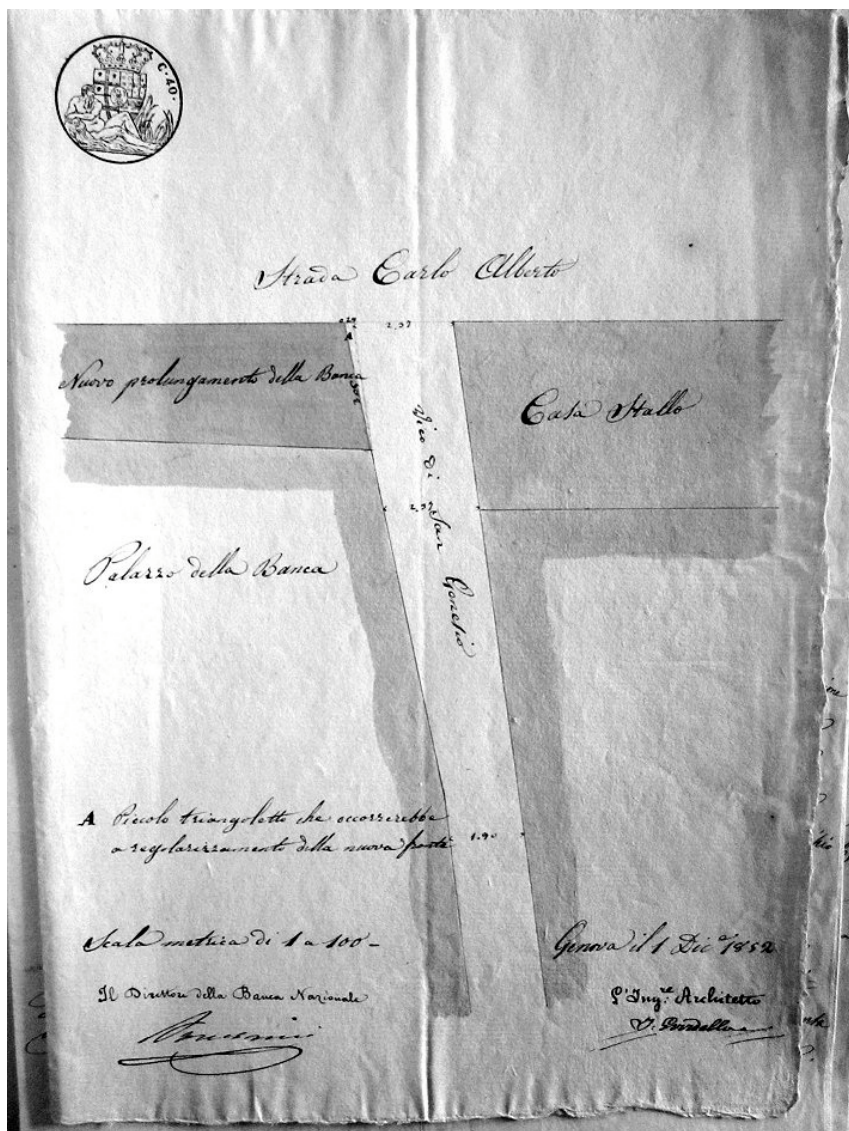 C. 40.
Strada Carlo Alberto
0,29
2,37
A
Nuovo prolungamento della Banca
Casa Stallo
Vico di San Genesio
2,37
Palazzo della Banca
A Piccolo triangoletto che occorrerebbe
a regolarizzamento della nuova fronte
1.90
Scala metrica di 1 a 100 -
Genova il 1 Dic.e 1852
Il Direttore della Banca Nazionale
L'Ing.re Architetto